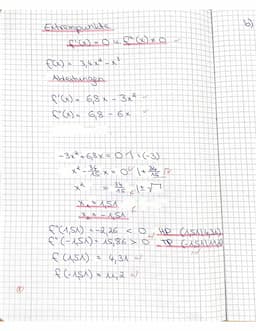 Extrempunkte
b)
f'(x) = 0 u f''(x) ≠ 0
f(x) = 3,4x² - x³
Ableitungen
f'(x) = 6,8x - 3x²
f''(x) = 6,8 - 6x
-3x² + 6,8x = 0 | : (-3)
x² - 34/15 x = 0 | + 34/15
x² = 34/15 | ±√
x₁ = 1,51
x₂ = -1,51
f''(1,51) = -2,26 < 0 HP (1,51|4,31)
f''(-1,51) = 15,86 > 0 TP (-1,51|11,2)
f(1,51) = 4,31
f(-1,51) = 11,2